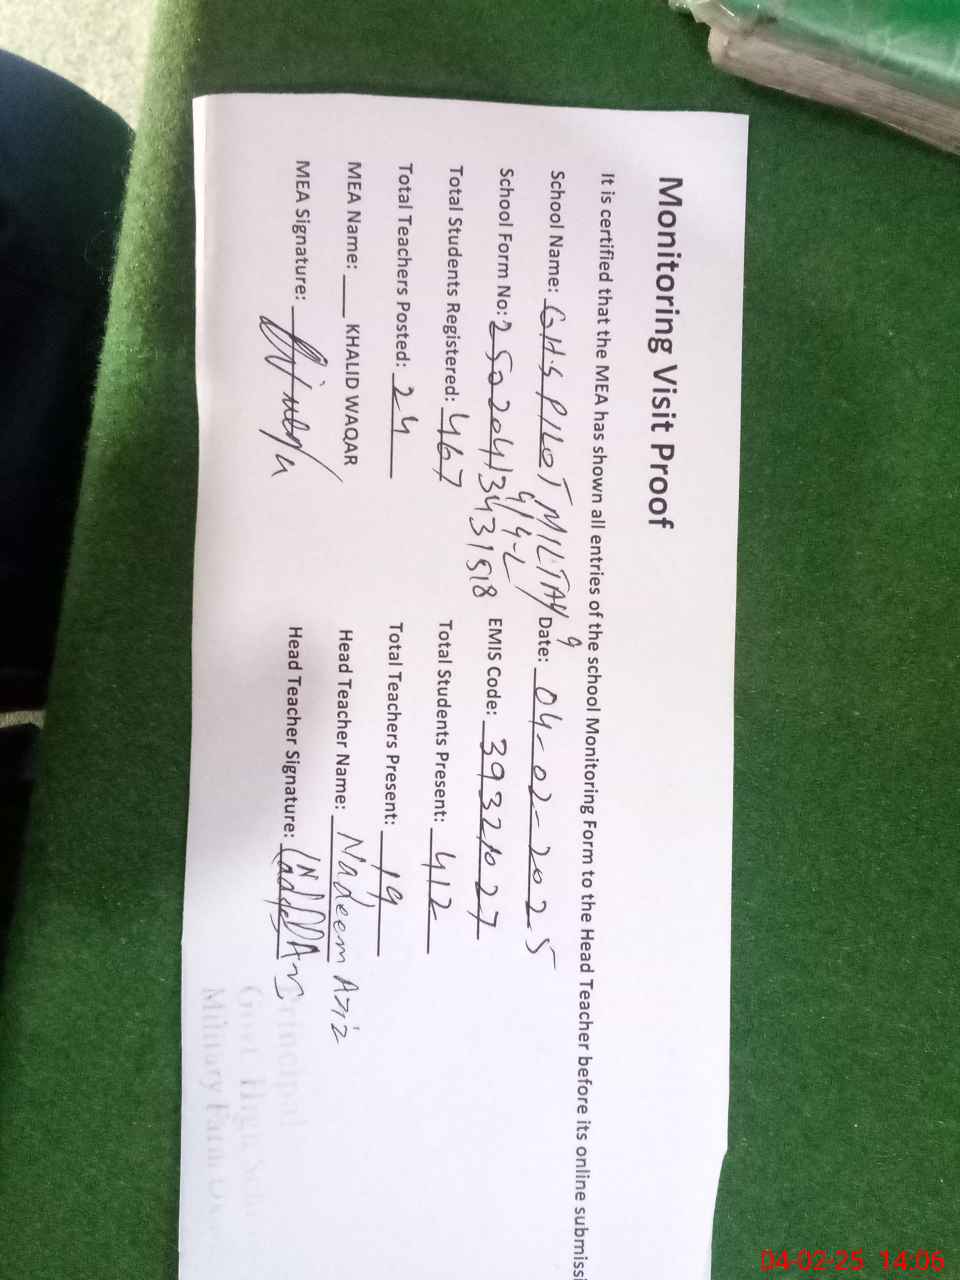 Monitoring Visit Proof
It is certified that the MEA has shown all entries of the school Monitoring Form to the Head Teacher before its online submissi
School Name: G.H.S PILOT MILTAY 9 Date: 04-02-2025
4/4-L
School Form No: 250204/3431518 EMIS Code: 39321027
Total Students Registered: 467 Total Students Present: 412
Total Teachers Posted: 24 Total Teachers Present: 19
MEA Name: KHALID WAQAR Head Teacher Name: Nadeem Aziz
MEA Signature: Head Teacher Signature:
Principal
Govt. High
Military Farm
04-02-25 14:06